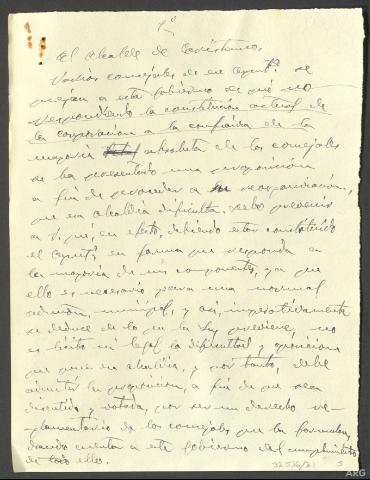 1º
Al Alcalde de
Varios concejales de ese Ayuntº se
quejan a este Gobierno de que no
respondiendo la constitución actual de
la corporación a la confianza de la
mayoría absoluta de los concejales
se ha presentado una proposición
a fin de proceder a su reorganización,
que esa alcaldía dificulta. Debo prevenir
a V. que, en efecto, debiendo estar constituido
el Ayuntº en forma que responda a
la mayoría de sus componentes, ya que
ello es necesario para una normal
admón. municipal, y así, imperativamente
se deduce de lo que la Ley previene, no
es lícito ni legal la dificultad y oposición
que pone esa alcaldía, y por tanto, debe
admitir la proposición, a fin de que sea
discutida y votada, por ser un derecho re-
glamentario de los concejales que la formulan,
dando cuenta a este Gobierno del cumplimiento
de ello.
32526/21 5
ARG